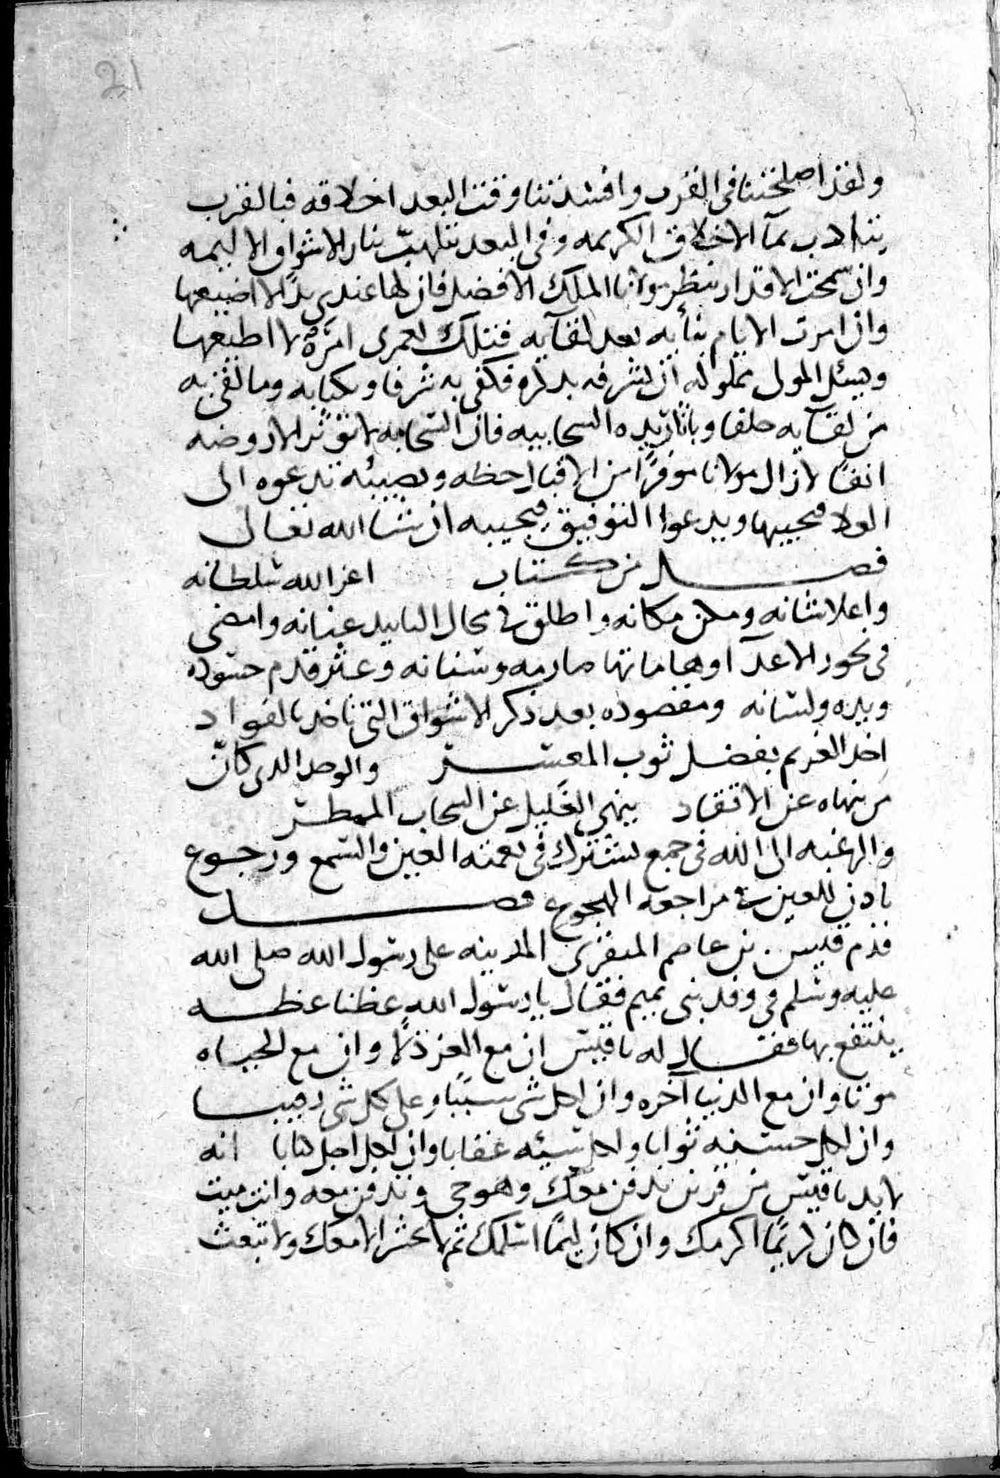 21
ولقد اصلحتنا في القرب وافسدتنا وقت البعد اخلاقه فبالقرب
نتادب بمآ الاخلاق الكريمه وفي البعد نتلهب بنار الاشواق الاليمه
وان سمحت الاقدار بنظر مولانا الملك الافضل فان لها عندي يدًا لا اضيعها
وان امرت الايام بنأيه بعد لقآيه فتلك لعمرى امرَةٌ لا اطيعها
ويسئل المولى مملوكه ان يشرفه بذكره فكفى به شرفا وبكتابه وما لقي به
من لقآيه خلفا وباثار يده السحابيه فان السحابه لا تؤثر الا روضه
انفًا لا زال مولانا موفرًا من الاقبال حظه ونصيبه تدعوه الى
العلا فيجيبها ويدعوا التوفيق فيجيبه ان شا الله تعالى
فصل من كتاب اعز الله سلطانه
واعلا شانه ومكن مكانه واطلق في مجال التاييد عنانه وامضى
في نحور الاعدآ وهاماتها صارمه وسنانه وعثر قدم حسوده
ويده ولسانه ومقصوده بعد ذكر الاشواق التي تاخذ بالفواد
اخذ الغريم بفضل ثوب المعسر والوجد الذى كانّ
من ينهاه عن الاتقاد ينهى الغليل عن السحاب الممطر
والرغبه الى الله في جمع يشترك في نعمته العين والسمع ورجوع
ياذن للعين في مراجعه الهجوع فصل
قدم قيس بن عاصم المنقرى المدينه على رسول الله صلى الله
عليه وسلم في وفد بنى تميم فقال يا رسول الله عظنا عظه
ينتفع بها فقال له يا قيس ان مع العز ذلًا وان مع الحياه
موتا وان مع الدنيا آخره وان لكل شى سببًا وعلى كل شى رقيبا
وان لكل حسنه ثوابا ولكل سيئه عقابا وان لكل اجل كتابا انه
لا بد يا قيس من قرين يدفن معك وهو حى وتدفن معه وانت ميت
فان كان كريمًا اكرمك وان كان ليئمًا اسلمك ثم لا يحشر الا معك ولا تبعث